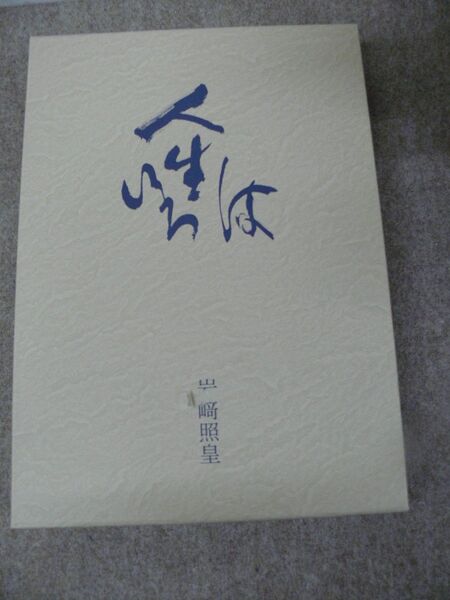 人生いろは
岩﨑照皇